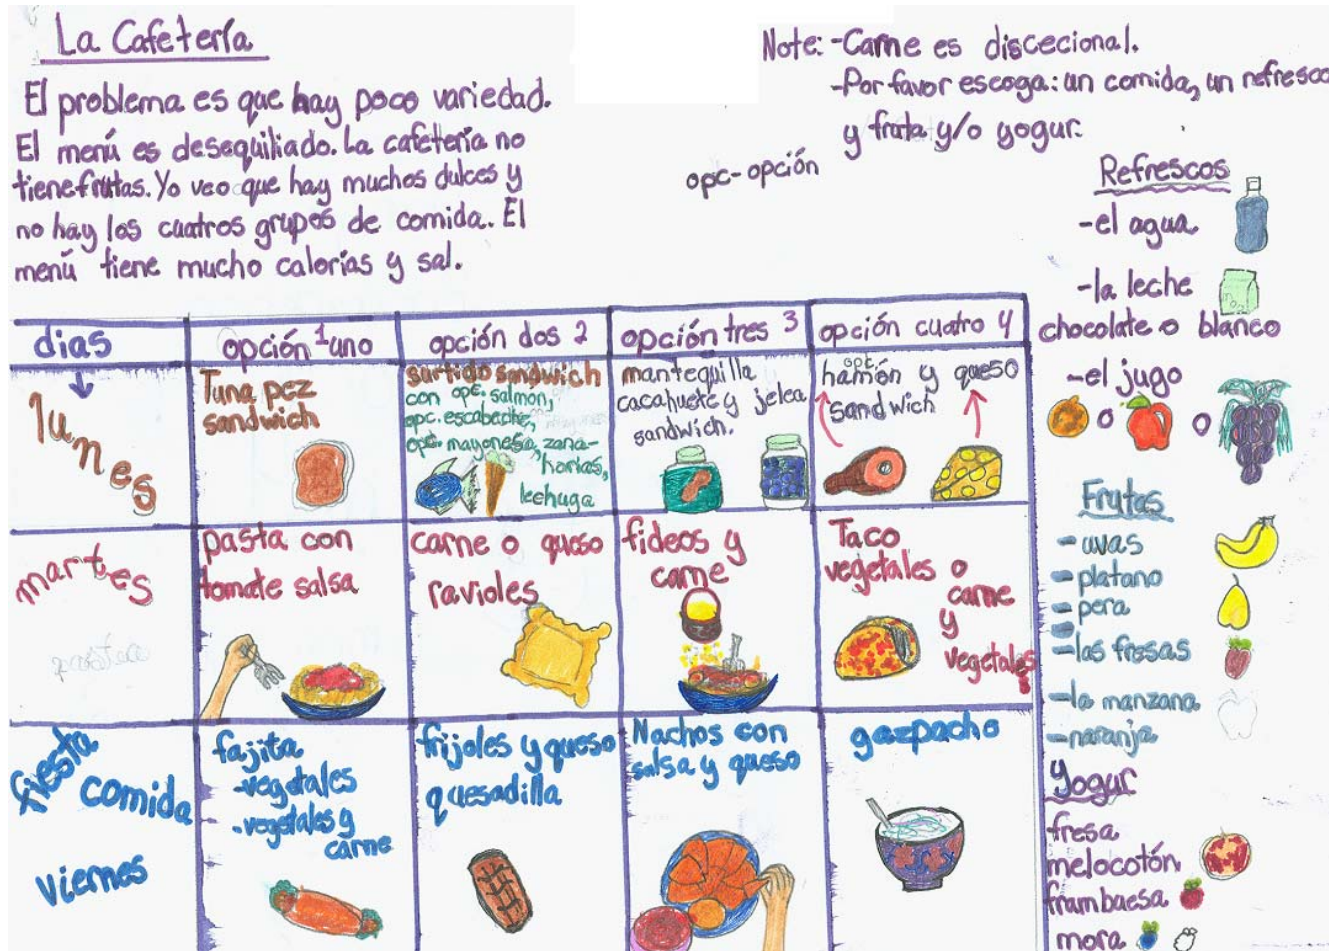 La Cafetería
El problema es que hay poco variedad.
El menú es desequiliado. La cafetería no
tiene frutas. Yo veo que hay muchos dulces y
no hay los cuatros grupos de comida. El
menú tiene mucho calorías y sal.
Note: -Carne es discecional.
-Por favor escoga: un comida, un refresco
y fruta y/o yogur.
opc- opción
dias
opción 1 uno
opción dos 2
opción tres 3
opción cuatro 4
lunes
Tuna pez
sandwich
surtido sandwich
con opc. salmon,
opc. escabeche,
opc. mayonesa, zana-
horias,
lechuga
mantequilla
cacahuete y jelea
sandwich.
opc.
hamón y queso
sandwich
martes
pasta con
tomate salsa
carne o queso
ravioles
fideos y
carne
Taco
vegetales o
carne
y
vegetales
fiesta
comida
viernes
fajita
-vegetales
-vegetales y
carne
frijoles y queso
quesadilla
Nachos con
salsa y queso
gazpacho
Refrescos
-el agua
-la leche
chocolate o blanco
-el jugo
o o
Frutas
-uvas
-platano
-pera
-las fresas
-la manzana
-naranja
Yogur
fresa
melocotón
frambaesa
mora